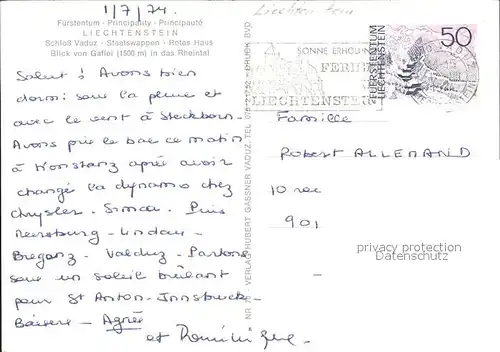 1/7/74.
Liechtenstein
Fürstentum - Principality - Principauté
LIECHTENSTEIN
Schloß Vaduz - Staatswappen - Rotes Haus
Blick von Gaflei (1500 m) in das Rheintal
Salut! Avons bien
dormi sous la pluie et
avec le vent à Steckborn.
Avons pris le bac ce matin
à Konstanz après avoir
changé la dynamo chez
chrysler - Simca. Puis
Meersburg - Lindau -
Bregenz - Valduz - Partons
sous un soleil brûlant
pour St Anton - Innsbruck -
Bavière - Agnès
et Dominique
VERLAG HUBERT GASSNER VADUZ
SONNE ERHOLUNG
FERIEN
LIECHTENSTEIN
FUERSTENTUM
LIECHTENSTEIN
50
Famille
Robert ALLEMAND
10 rue
901
privacy protection
Datenschutz